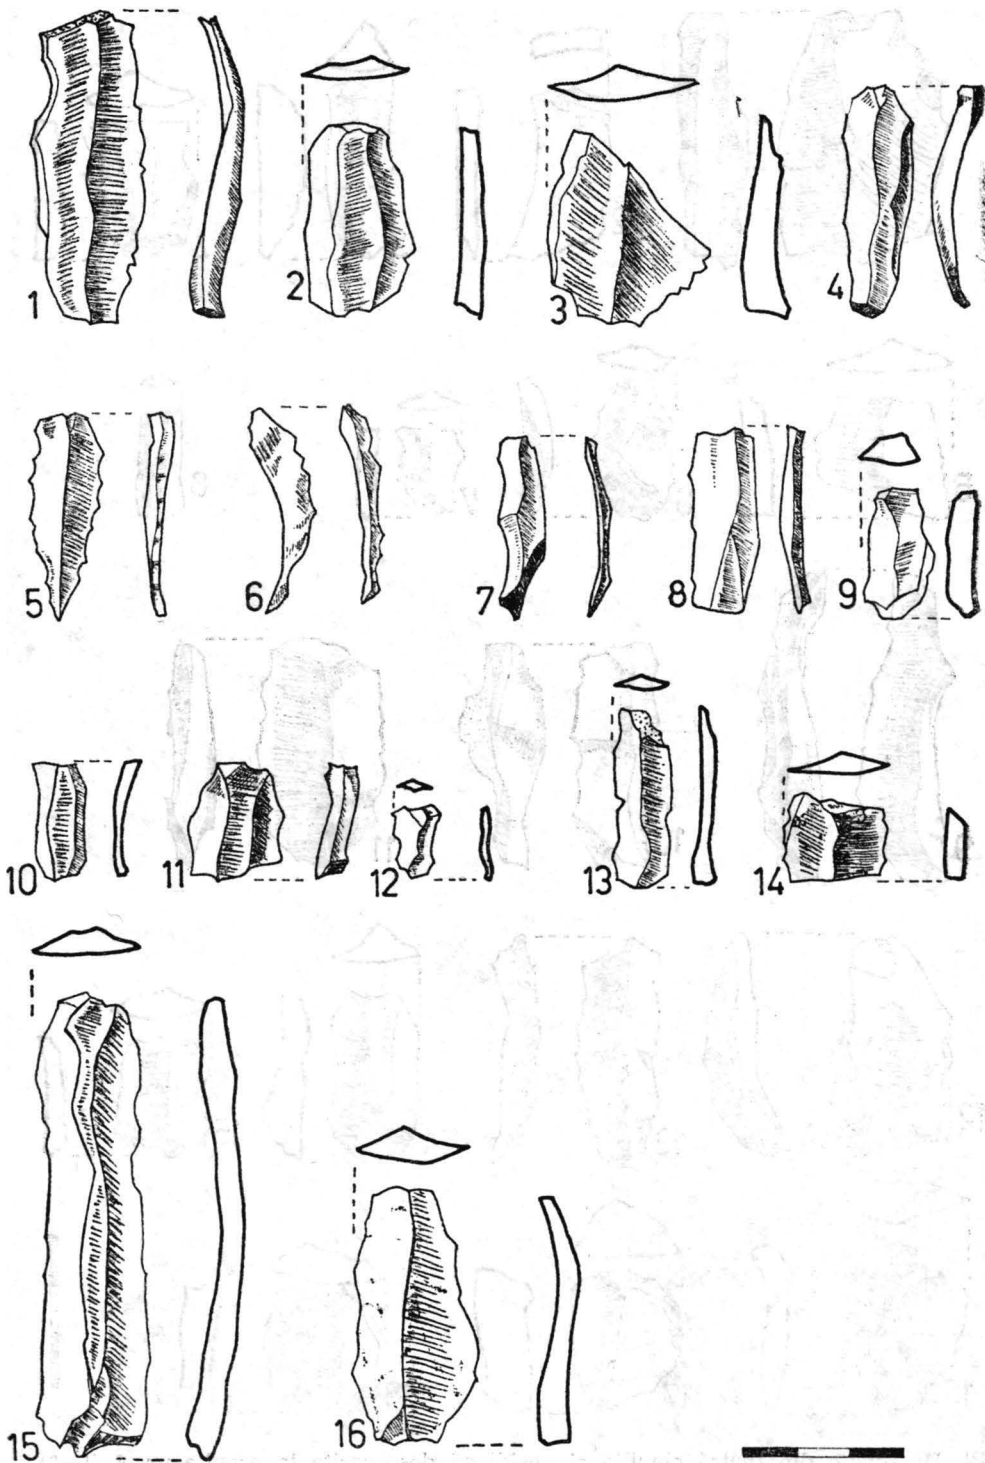 1 2 3 4
5 6 7 8 9
10 11 12 13 14
15 16